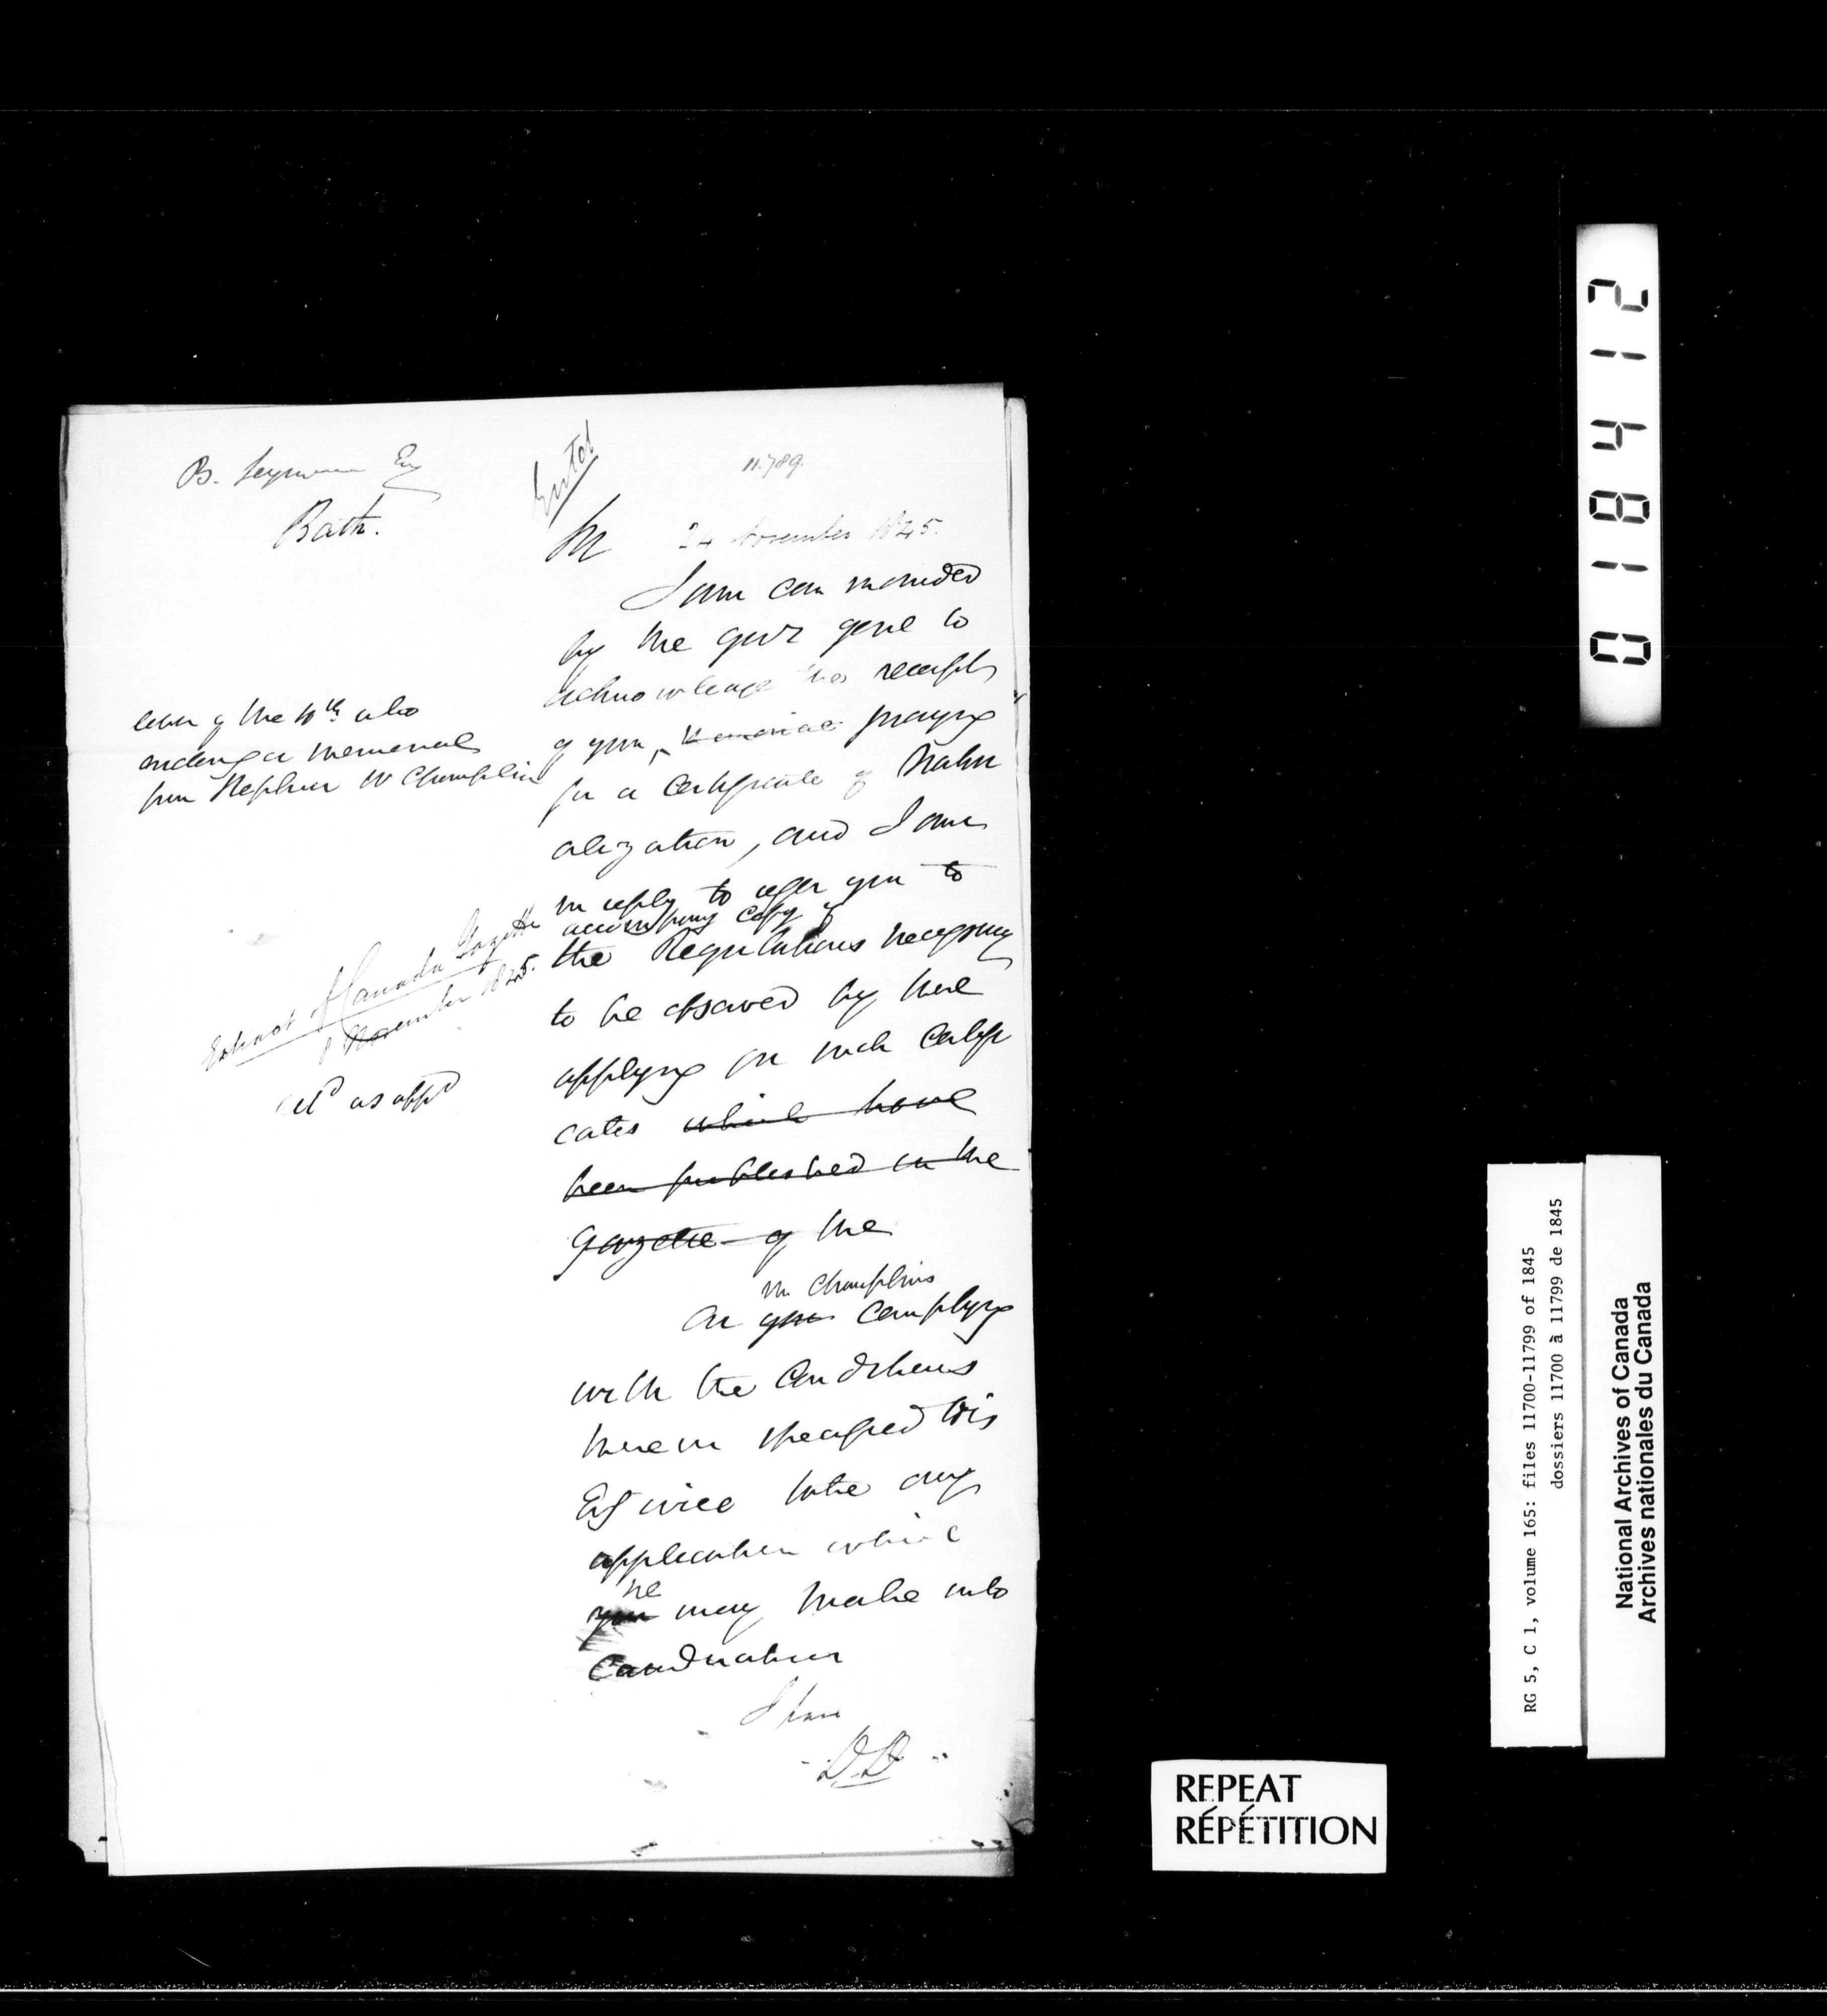 B. Seymour Esq
Bath.
Entd
11.789.
Sir 24 November 1845.
I am commanded
by the Govr Genl to
acknowledge the receipt
letter of the 10th also
enclosing a memorial
from Stephen W Champlin
of your memorial praying
for a Certificate of Natur
alization, and I am
in reply to refer you to
accompanying copy of
the Regulations necessary
to be observed by those
applying for such Certifi
cates which have
been published in the
Gazette of the
Extract Canada Gazette
November 1845.
as appd
Mr Champlins
On your complying
with the Conditions
therein specified His
Ex will take any
application which
he
you may make into
Consideration
I have
D.D
01841-2
RG 5, C 1, volume 165: files 11700-11799 of 1845
dossiers 11700 à 11799 de 1845
National Archives of Canada
Archives nationales du Canada
REPEAT
RÉPÉTITION